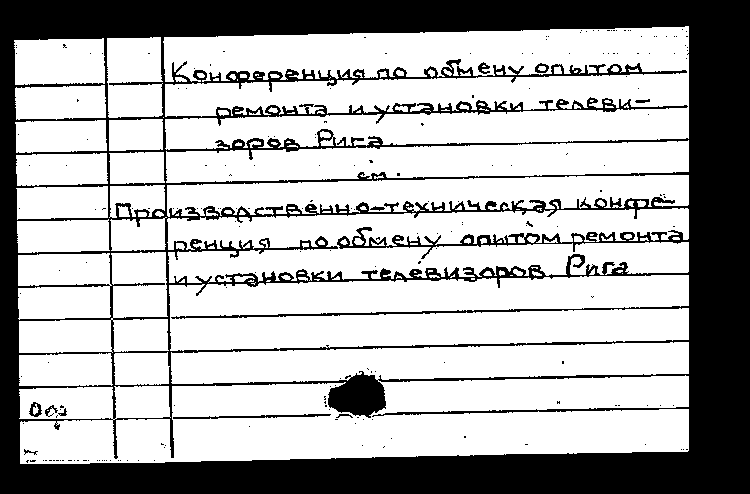 Конференция по обмену опытом
ремонта и установки телеви-
зоров Рига.
см.
Производственно-техническая конфе-
ренция по обмену опытом ремонта
и установки телевизоров. Рига